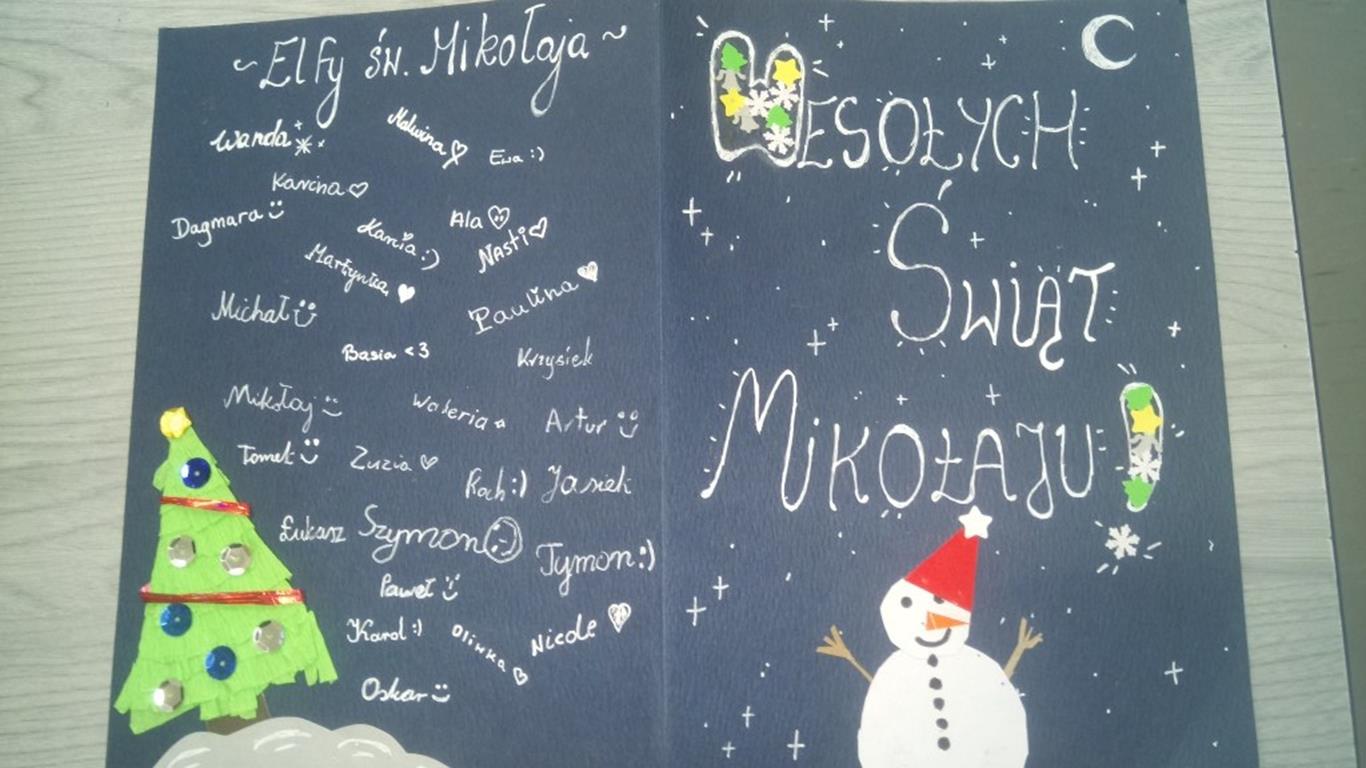 ~Elfy św. Mikołaja~
Wanda
Malwina
Ewa :)
Karina
Dagmara
Ala
Kasia :)
Nasti
Martynka
Paulina
Michał
Basia <3
Krzysiek
Mikołaj
Waleria
Artur
Tomek
Zuzia
Roch :)
Jasiek
Łukasz
Szymon :)
Tymon :)
Paweł
Karol :)
Oliwka
Nicole
Oskar
WESOŁYCH
ŚWIĄT
MIKOŁAJU!